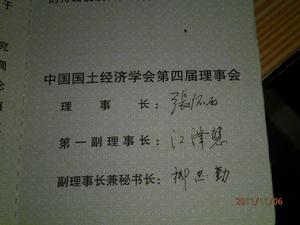 中国国土经济学会第四届理事会
理事长：張怀西
第一副理事长：江泽慧
副理事长兼秘书长：柳忠勤
2011/11/06